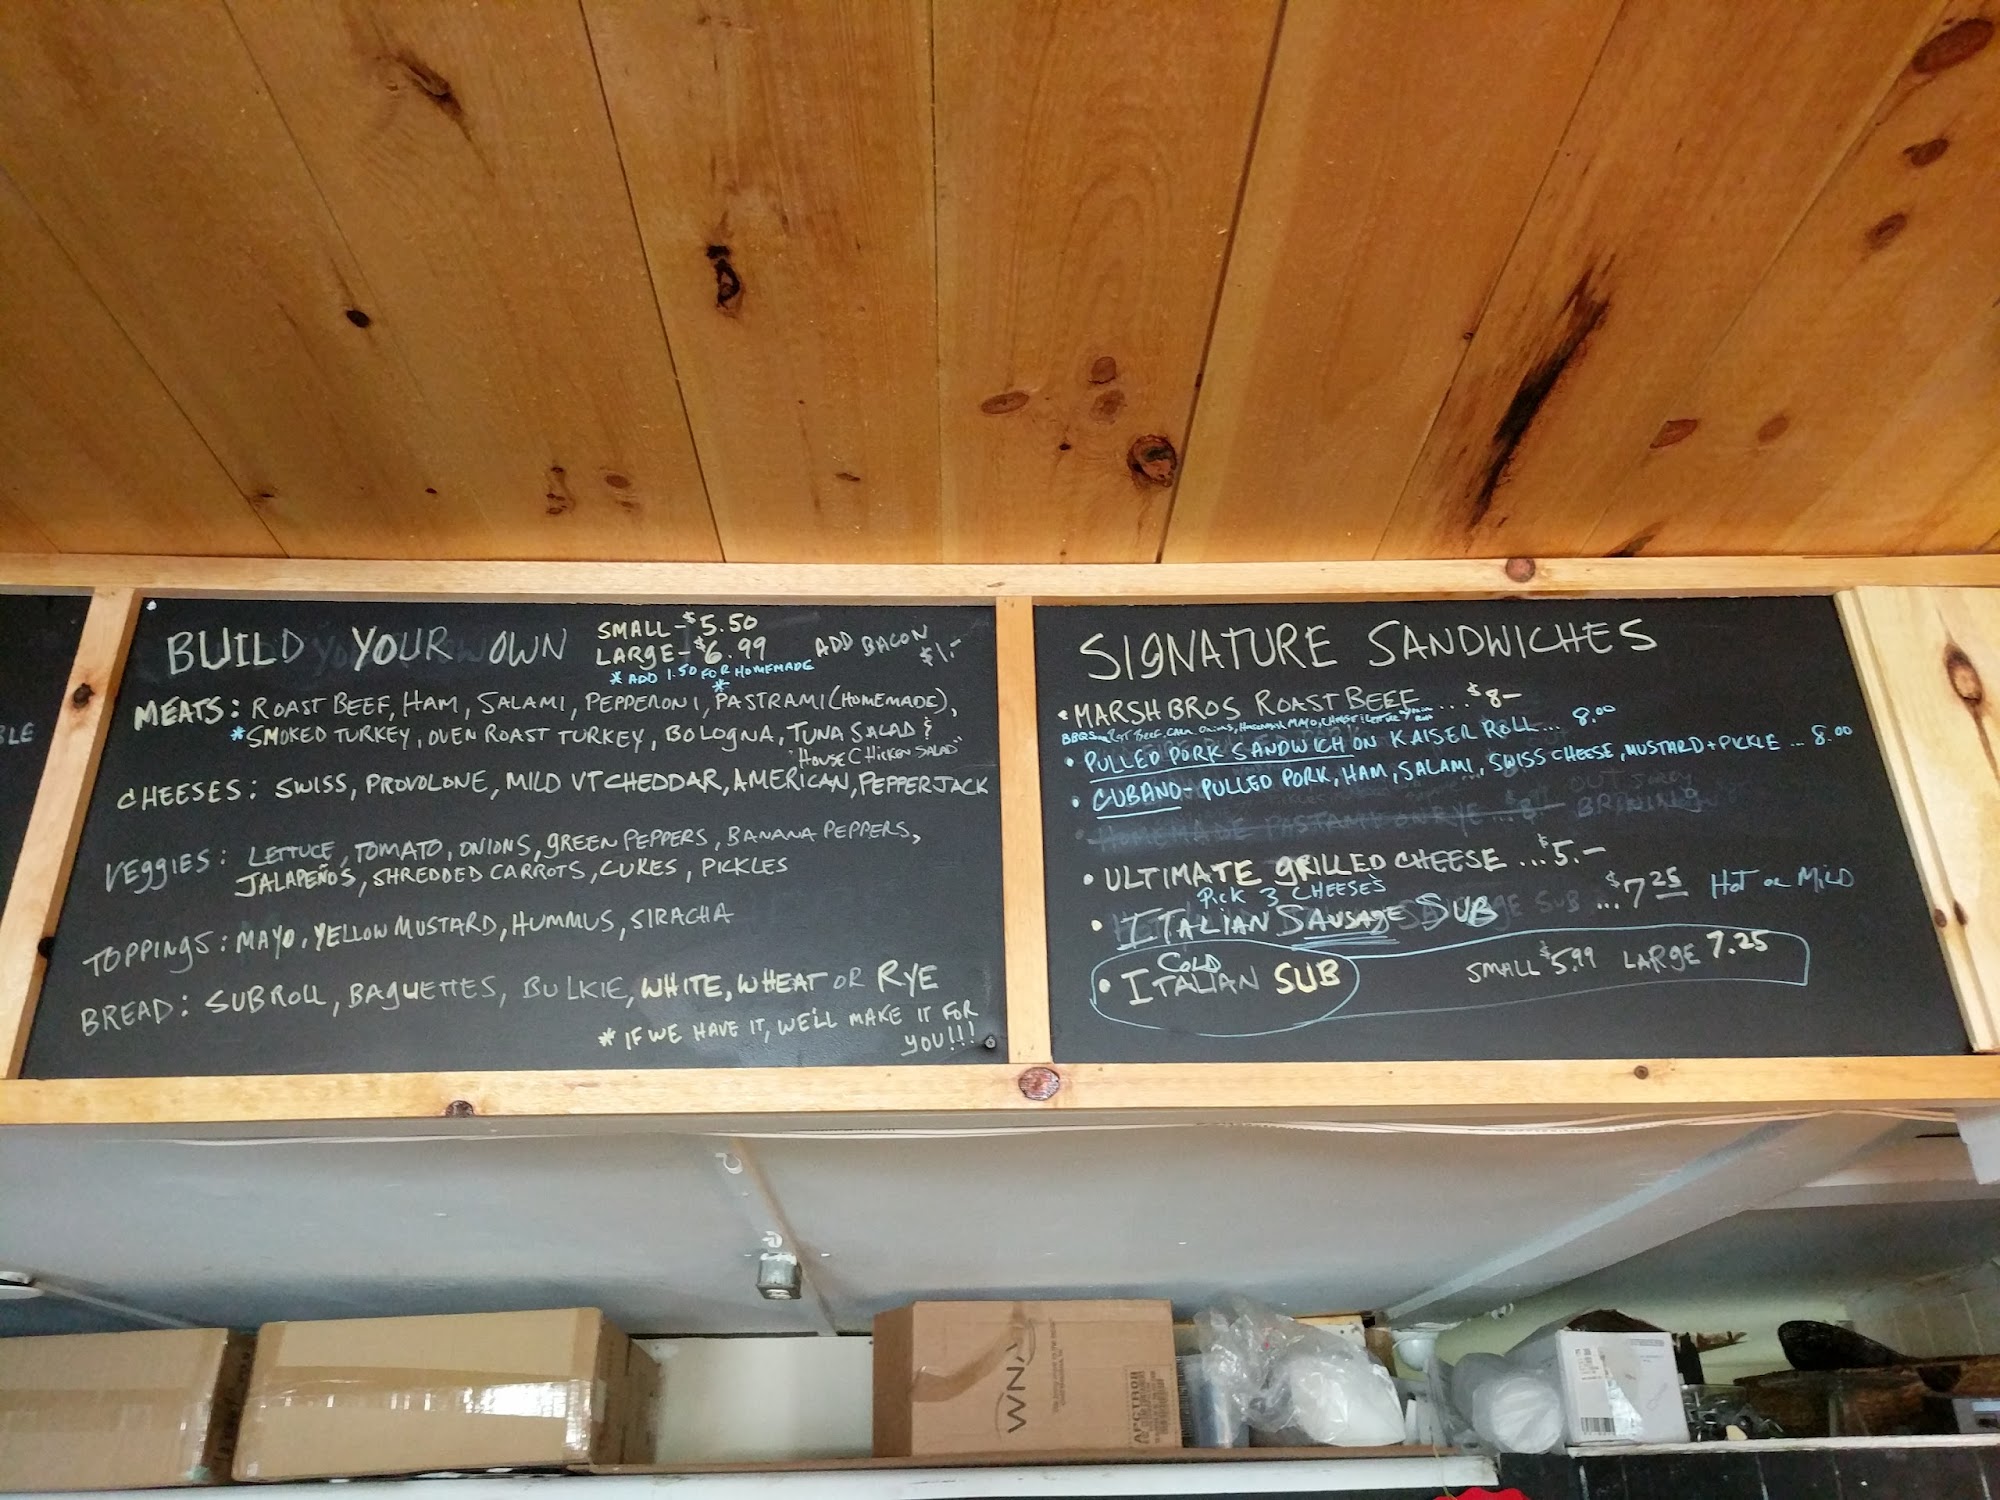 BUILD YOUR OWN
SMALL - $5.50
LARGE - $6.99
* ADD 1.50 FOR HOMEMADE
ADD BACON
$1.-
MEATS: ROAST BEEF, HAM, SALAMI, PEPPERONI, *PASTRAMI (HOMEMADE),
*SMOKED TURKEY, OVEN ROAST TURKEY, BOLOGNA, TUNA SALAD &
"HOUSE CHICKEN SALAD"
CHEESES: SWISS, PROVOLONE, MILD VT CHEDDAR, AMERICAN, PEPPERJACK
VEGGIES: LETTUCE, TOMATO, ONIONS, GREEN PEPPERS, BANANA PEPPERS,
JALAPEÑOS, SHREDDED CARROTS, CUKES, PICKLES
TOPPINGS: MAYO, YELLOW MUSTARD, HUMMUS, SIRACHA
BREAD: SUB ROLL, BAGUETTES, BULKIE, WHITE, WHEAT OR RYE
* IF WE HAVE IT, WE'LL MAKE IT FOR
YOU!!!
SIGNATURE SANDWICHES
• MARSH BROS ROAST BEEF ... $8-
• PULLED PORK SANDWICH ON KAISER ROLL ... 8.00
• CUBANO - PULLED PORK, HAM, SALAMI, SWISS CHEESE, MUSTARD + PICKLE ... 8.00
HOMEMADE PASTAMI ON RYE ... 8.- BRINING
• ULTIMATE GRILLED CHEESE ... $5.-
PICK 3 CHEESE'S
• ITALIAN SAUSAGE SUB ... $7.25 HOT OR MILD
COLD
• ITALIAN SUB SMALL $5.99 LARGE 7.25
BLE
WNA
APCTR08